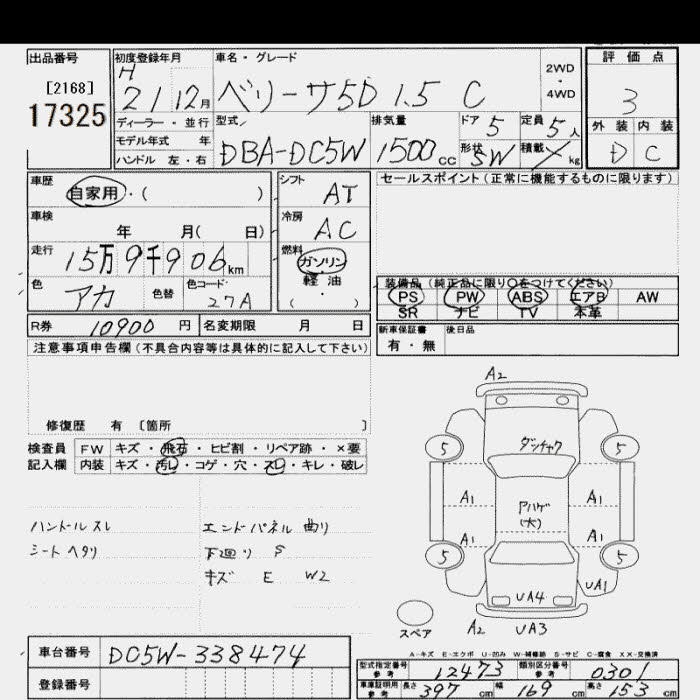 出品番号 初度登録年月 車名・グレード 評価点
[2168] H 2WD
17325 21 12月 ベリーサ5D 1.5 C ・4WD 3
ディーラー・並行 型式 排気量 ドア 5 定員 5人 外装 内装
モデル年式 年 D C
ハンドル 左・右 DBA-DC5W 1500cc 形状 SW 積載 kg
車歴 自家用・( ) シフト AT セールスポイント(正常に機能するものに限ります)
車検 年 月( 日) 冷房 AC
走行 15万9千906km 燃料 ガソリン
色 アカ 色替 色コード 27A 軽油 装備品(純正品に限り○をつけてください)
・( ) PS PW ABS エアB AW
SR ナビ TV 本革
R券 10900円 名変期限 月 日 新車保証書 後日品
有・無
注意事項申告欄(不具合内容等は具体的に記入して下さい)
修復歴 有 〔箇所 〕
検査員 FW キズ・飛石・ヒビ割・リペア跡・×要
記入欄 内装 キズ・汚レ・コゲ・穴・スレ・キレ・破レ
ハンドルスレ エンドパネル 曲り
シートヘタリ 下廻り S
キズ E W2
A2
5 ダッチャク 5
A1 アハゲ A1
(大)
A1 A1
5 5
UA4 UA1
スペア A2 UA3
A-キズ E-エクボ U-凹み W-補修跡 S-サビ C-腐食 XX-交換済
車台番号 DC5W-338474
型式指定番号 参考 12473 類別区分番号 参考 0301
登録番号
車庫証明用 参考 長さ 397cm 幅 169cm 高さ 153cm